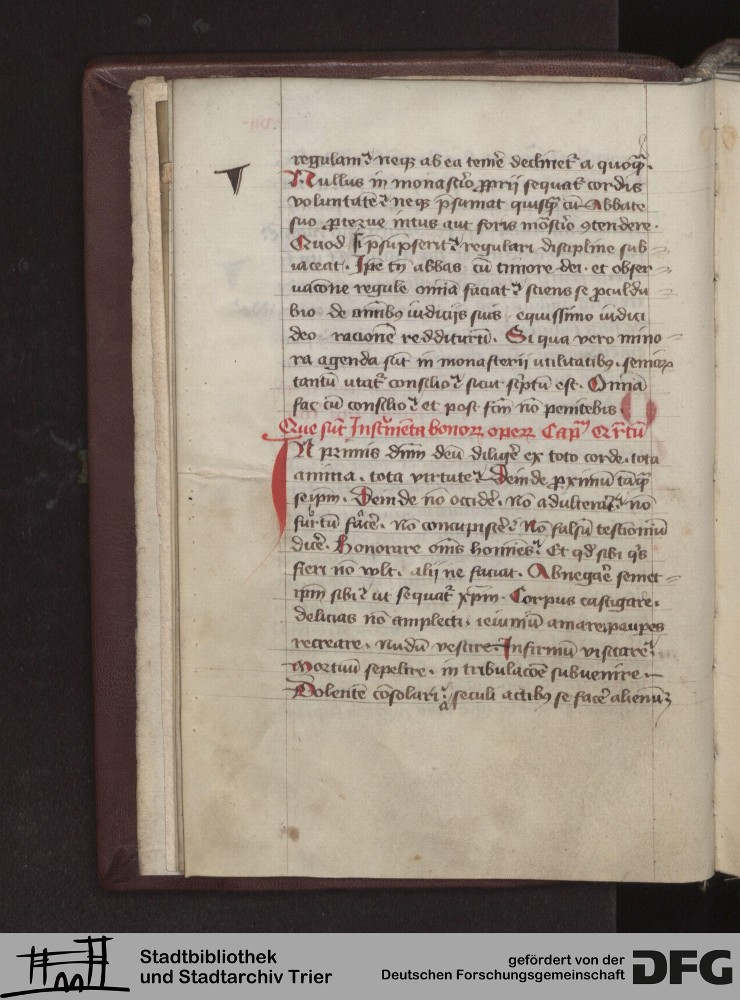 regulam neqȝ ab ea temē declinet᷑ a quoq̄ꝫ.
Nullus in monast̄io ꝓprij sequat᷑ cordis
voluntatē neqȝ p̄sumat quisq̄ꝫ cū Abbate
suo ꝓterue intus aut foris mōst̄io ꝯtendere.
Quod si p̄supserit regulari discipline sub-
iaceat. Ip̄e tn̄ abbas cū timore dei. et obser-
uac̄one regule om̄ia faciat sciens se ꝓculdu
bio de om̄ibꝰ iudicijs suis equissimo iudici
deo racionē redditurū. Si qua vero mino-
ra agenda sūt in monasterii utilitatibꝰ. senioꝝ
tantū utat᷑ consilio sicut sc̄ptū est. Om̄ia
fac cū consilio et post fc̄m nō penitebis
Que sūt Inst̄mēta bonoꝝ operꝫ Cap̄ Qr̄tū
IN primis dn̄m deū diligē ex toto corde. tota
anima. tota virtute Deinde ꝓximū tāq̄ꝫ
seip̄m. Deinde nō occidē. nō adulterari. nō
furtū facē. nō concupiscē. Nō falsū testioniū
dicē. Honorare om̄s homīes. Et qd̄ sibi q̄s
fieri nō vlt. alij ne faciat. Abnegare semet-
ip̄m sibi ut sequat᷑ xp̄m. Corpus castigare.
delicias nō amplecti. ieiuniū amare. paupes
recreare. nudū vestire. Infirmū visitare.
Mortuū sepelire. in tribulacōe subuenire.
Dolentē cōsolari. a seculi actibꝰ se facē alienū
Stadtbibliothek
und Stadtarchiv Trier
gefördert von der
Deutschen Forschungsgemeinschaft
DFG